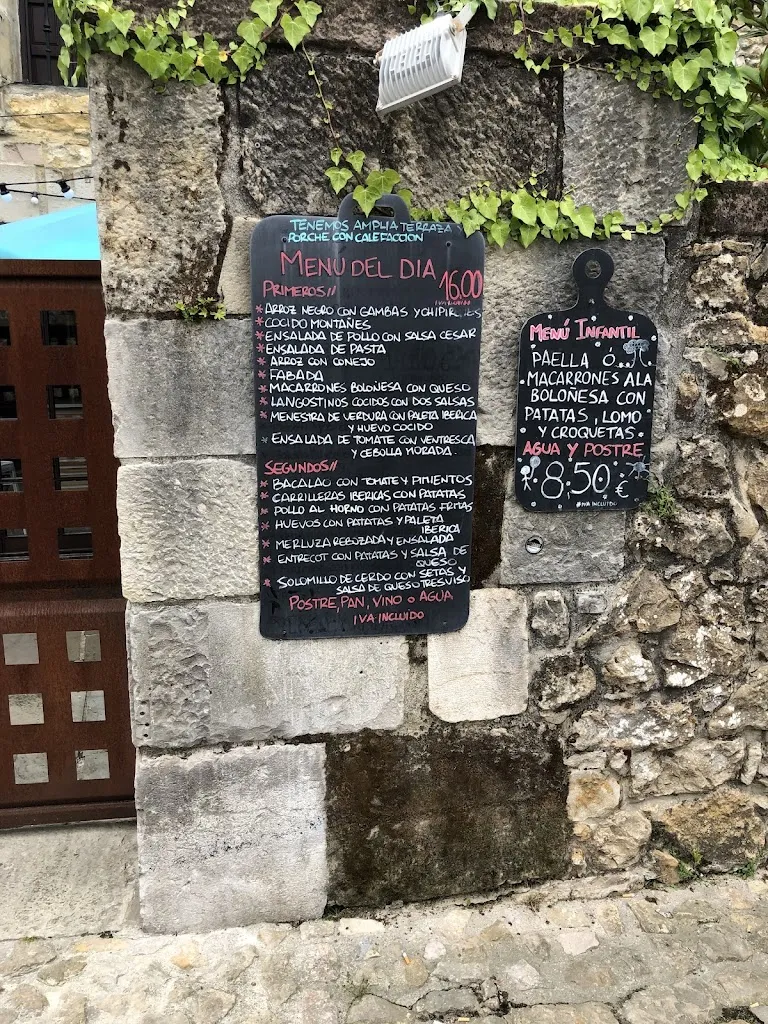 TENEMOS AMPLIA TERRAZA
PORCHE CON CALEFACCION
MENU DEL DIA 16.00
IVA INCLUIDO
PRIMEROS//
* ARROZ NEGRO CON GAMBAS Y CHIPIRONES
* COCIDO MONTAÑES
* ENSALADA DE POLLO CON SALSA CESAR
* ENSALADA DE PASTA
* ARROZ CON CONEJO
* FABADA
* MACARRONES BOLOÑESA CON QUESO
* LANGOSTINOS COCIDOS CON DOS SALSAS
* MENESTRA DE VERDURA CON PALETA IBERICA
Y HUEVO COCIDO
* ENSALADA DE TOMATE CON VENTRESCA
Y CEBOLLA MORADA.
SEGUNDOS//
* BACALAO CON TOMATE Y PIMIENTOS
* CARRILLERAS IBERICAS CON PATATAS
* POLLO AL HORNO CON PATATAS FRITAS
* HUEVOS CON PATATAS Y PALETA
IBERICA
* MERLUZA REBOZADA Y ENSALADA
* ENTRECOT CON PATATAS Y SALSA DE
QUESO
* SOLOMILLO DE CERDO CON SETAS Y
SALSA DE QUESO TRESVISO
POSTRE, PAN, VINO O AGUA
IVA INCLUÍDO
MENÚ INFANTIL
PAELLA Ó...
MACARRONES A LA
BOLOÑESA CON
PATATAS, LOMO
Y CROQUETAS.
AGUA Y POSTRE
8,50 €
*IVA INCLUÍDO